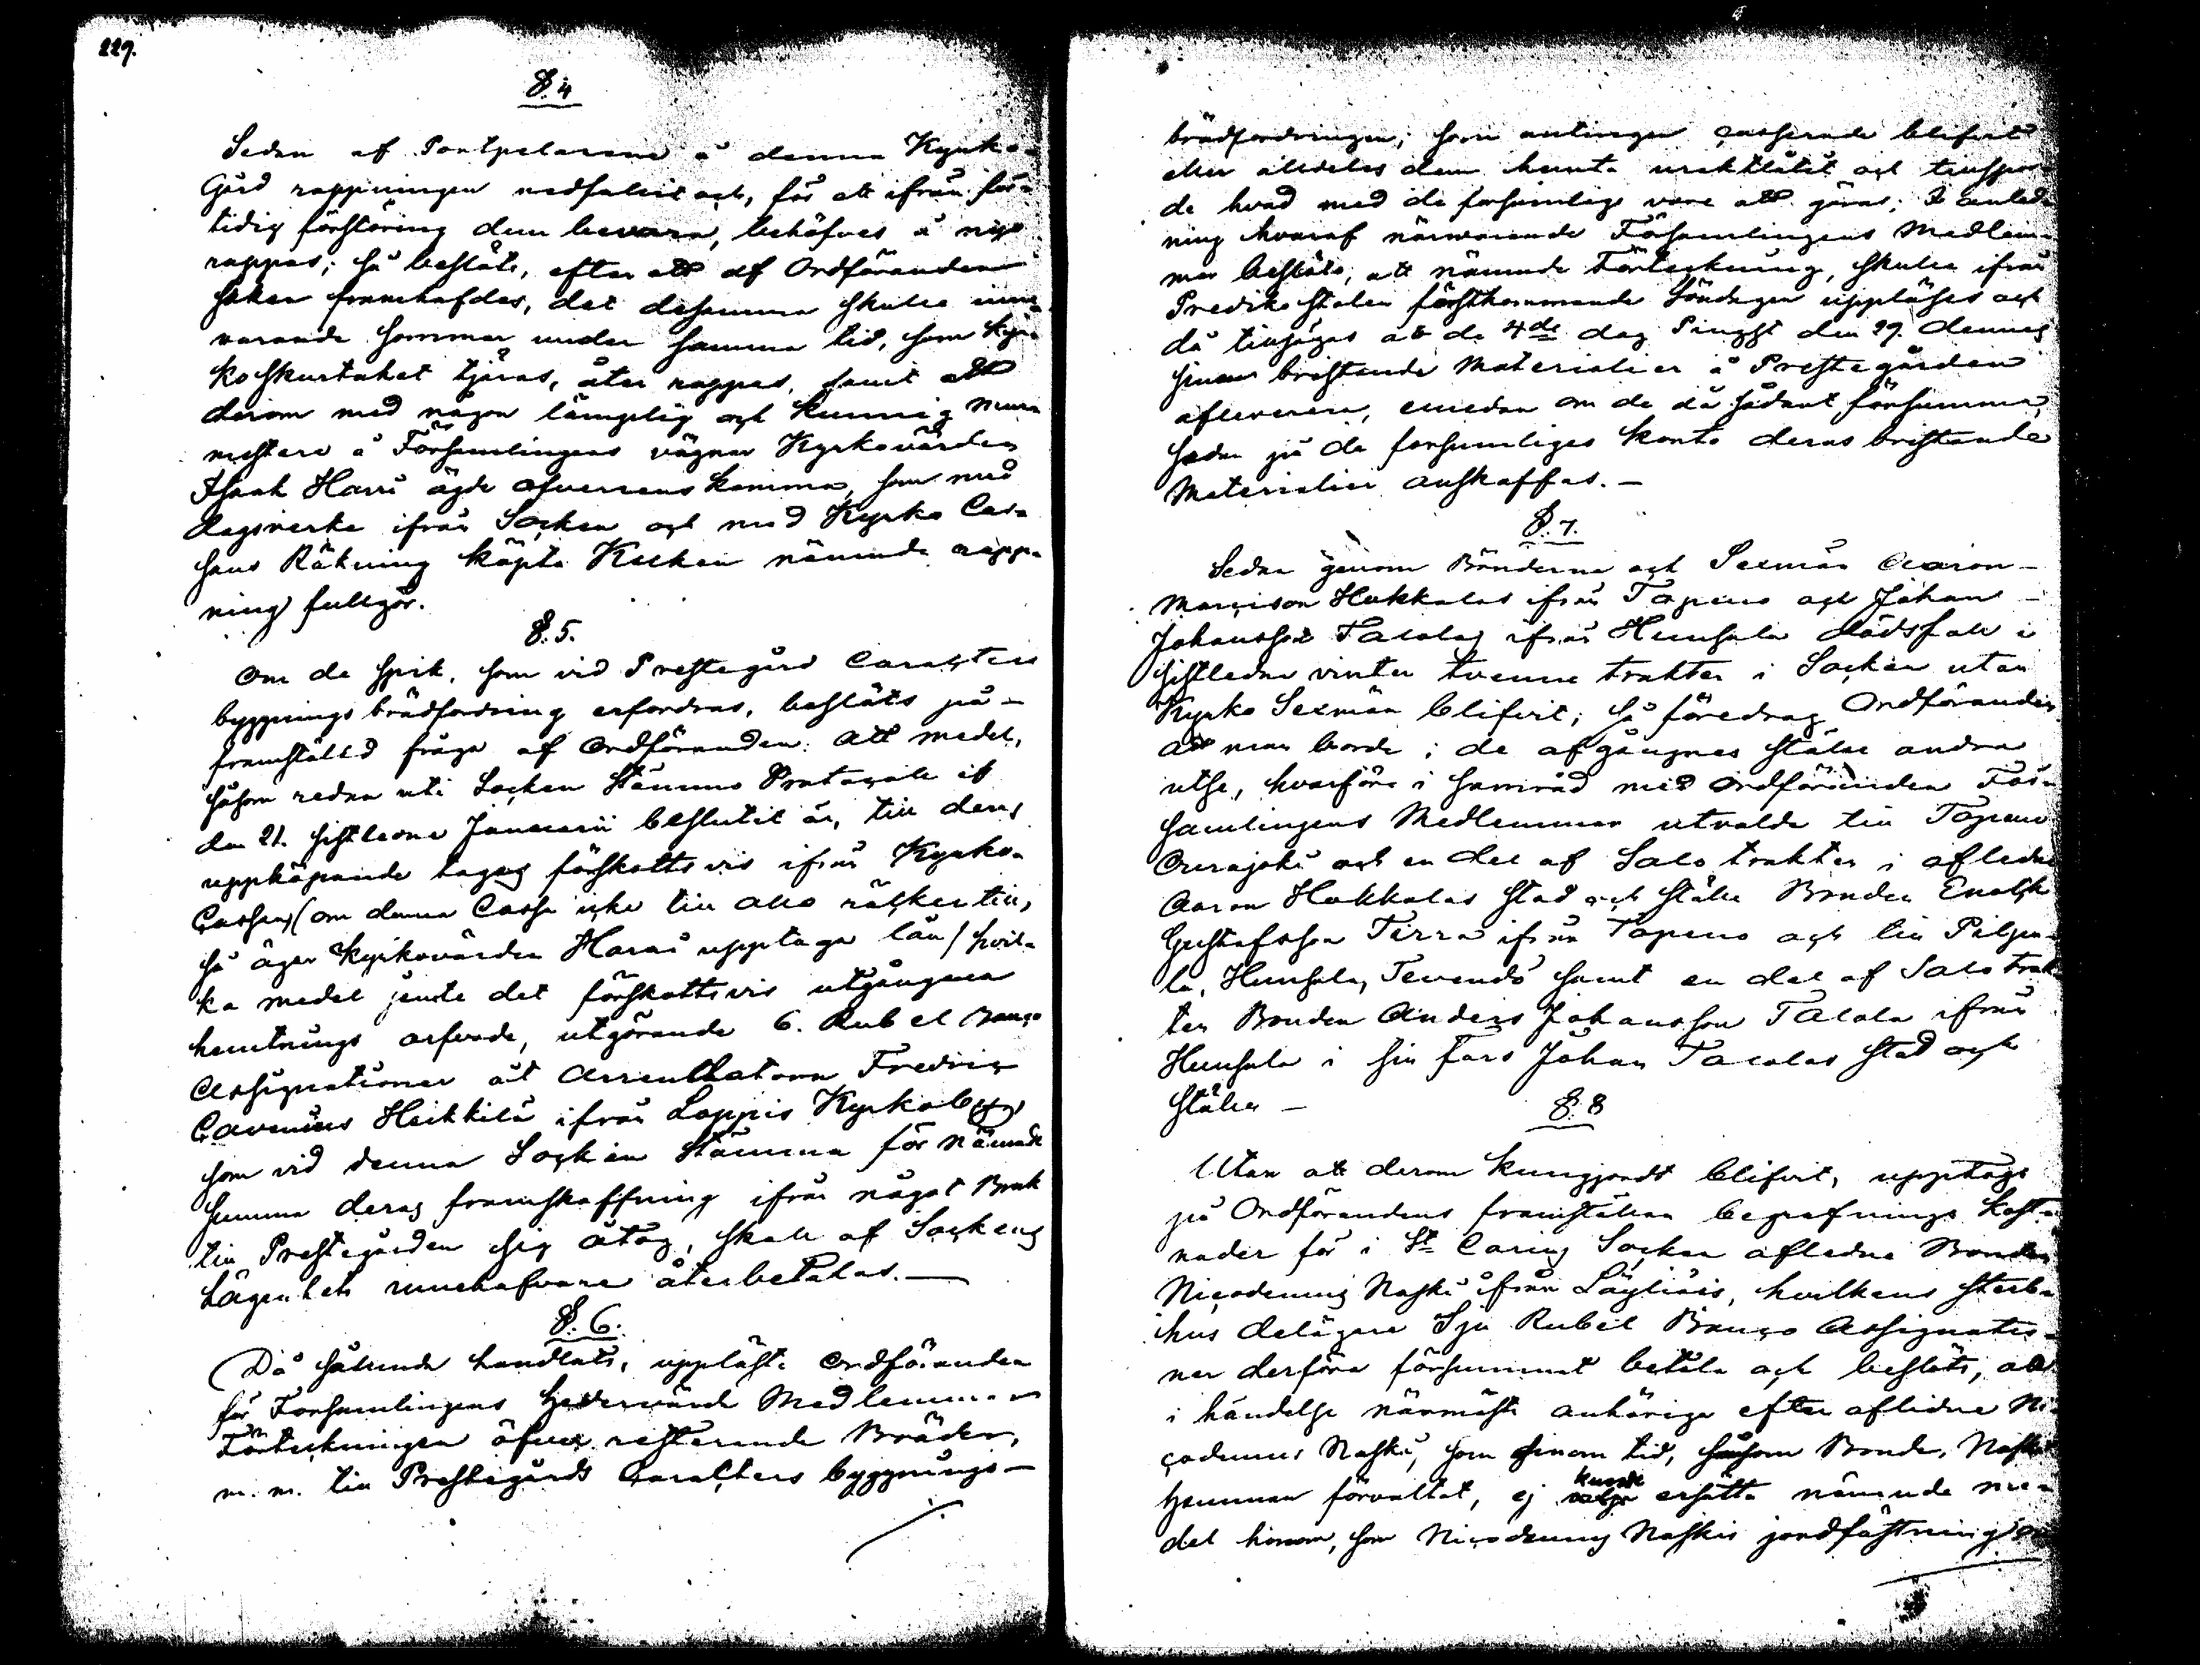 229.
§. 4
Sedan af Portpelarene å denna Kyrko-
Gård rappningen nedfallit och, för att ifrån för-
tidig förstöring dem bevara, behöfves å nyo
rappas; så beslöts, efter att af Ordföranden
saken framhafdes, det desamma skulle inne-
varande sommar under samma tid, som Kyr-
koskurtaket tjäras, åter rappas, samt att
derom med någon lämplig och kunnig Mur-
mästare å Församlingens vägnar Kyrkovärden
Isaak Harri ägde öfverenskomma, som med
dagsverke ifrån Socken och med Kyrko Cas-
sans Räkning köpta Kalken nämnde rapp-
ning fullgör.
§. 5.
Om de spik, som vid Prestegård Caracters
byggnings brädfordring erfordras, beslöts på
framställd fråga af Ordföranden: Att medel,
såsom redan uti Socken Stämmo Protocoll af
den 21. sistledne Januarii beslutit är, till dens
uppköpande tages förskottsvis ifrån Kyrko-
Cassan, (om denna Cassa icke till allo räcker till,
så äger Kyrkovärden Harri upptaga lån) hvil-
ka medel jemte det förskottsvis utgångna
hemtnings arfvode, utgörande 6. Rubel Banco
Assignationer åt Arrendatorn Fredric
Cavenius Heikkilä ifrån Loppis Kyrkoby,
som vid denna Socken Stämma för nämnde
summa deras framskaffning ifrån något Bruk
till Prestegården sig åtog, skall af Sockens
Lägenhets innehafvare återbetalas. —
§. 6.
Då sålunda handlats, uppläste Ordföranden
för Församlingens hedervärde Medlemmar
Förteckningen öfver resterande Bräder,
m. m. till Prestegårds Caracters byggnings—
brädfordringen; som antingen casserade blifvit
eller alldeles dem hemta uraktlåtit och tillspor-
de hvad med de försumlige vore att göras; I anled-
ning hvaraf närvarande Församlingens Medlem-
mar beslöto, att nämnde Förteckning, skulle ifrån
Predikostolen förstkommande Söndagen uppläses och
då tillsäges att de 4de dag Pingst den 29. dennes
sina bristande Materialier å Prestegården
aflevera, emedan om de då sådant försumma,
sedan på de försumliges konto deras bristande
Materialier anskaffas. —
§. 7.
Sedan genom Bönderna och Sexmän Aaron
Marcisson Hakkalas ifrån Topeno och Johan
Johansson Talolas ifrån Hunsala dödsfall i
sistledne vinter tvenne trakter i Socken utan
Kyrko Sexmän blifvit; så föredrog Ordföranden
Att man borde i de afgångnes ställe andra
utse, hvarföre i samråd med Ordföranden För-
samlingens Medlemmar utvalde till Topeno
och en del af Salo trakten i afledne
Aaron Hakkalas stad och ställe Bonden Enock
Gustafsson Terra ifrån Topeno och till Pilpa-
la, Hunsala, Tevendö samt en del af Salo trak-
ten Bonden Anders Johansson Talola ifrån
Hunsala i sin fars Johan Talolas stad och
ställe —
§. 8
Utan att derom kungjordt blifvit, upptogs
på Ordförandens framställan begrafnings kost-
nader för i St. Carins Socken afledne Bonden
Nicodemus Naski ifrån Läyliäis, hvilkens sterb-
hus delägare Sju Rubel Banco Assignatio-
ner derföre försummat betala och beslöts, att
i händelse närmaste anhöriga efter aflidne Ni-
codemus Naski, som sinom tid, såsom Bonde, Naski
hemman förvaltat, ej kunde ersätta nämnde me-
del honom, som Nicodemus Naskis jordfästning